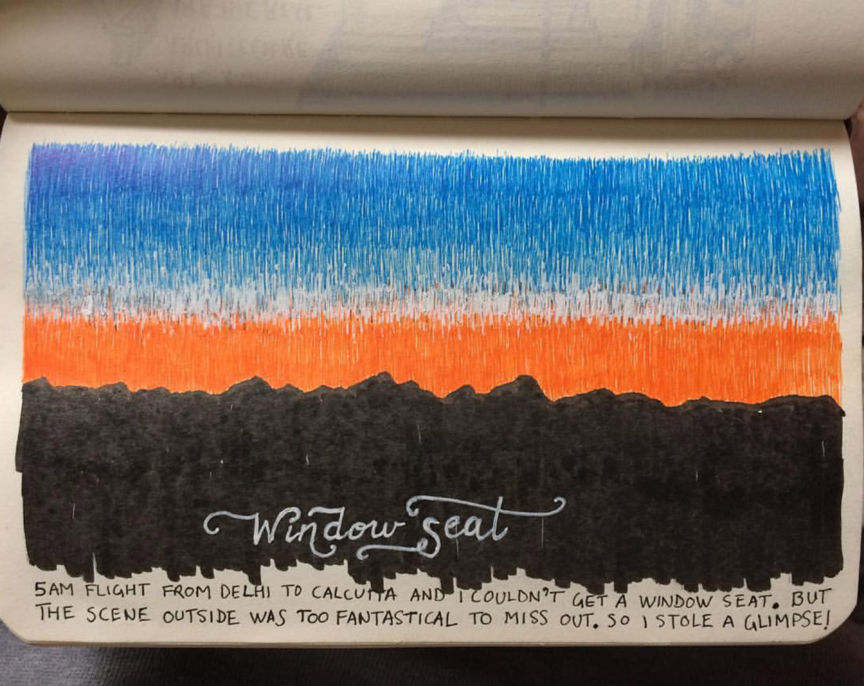 Window seat
5AM FLIGHT FROM DELHI TO CALCUTTA AND I COULDN'T GET A WINDOW SEAT. BUT
THE SCENE OUTSIDE WAS TOO FANTASTICAL TO MISS OUT. SO I STOLE A GLIMPSE!